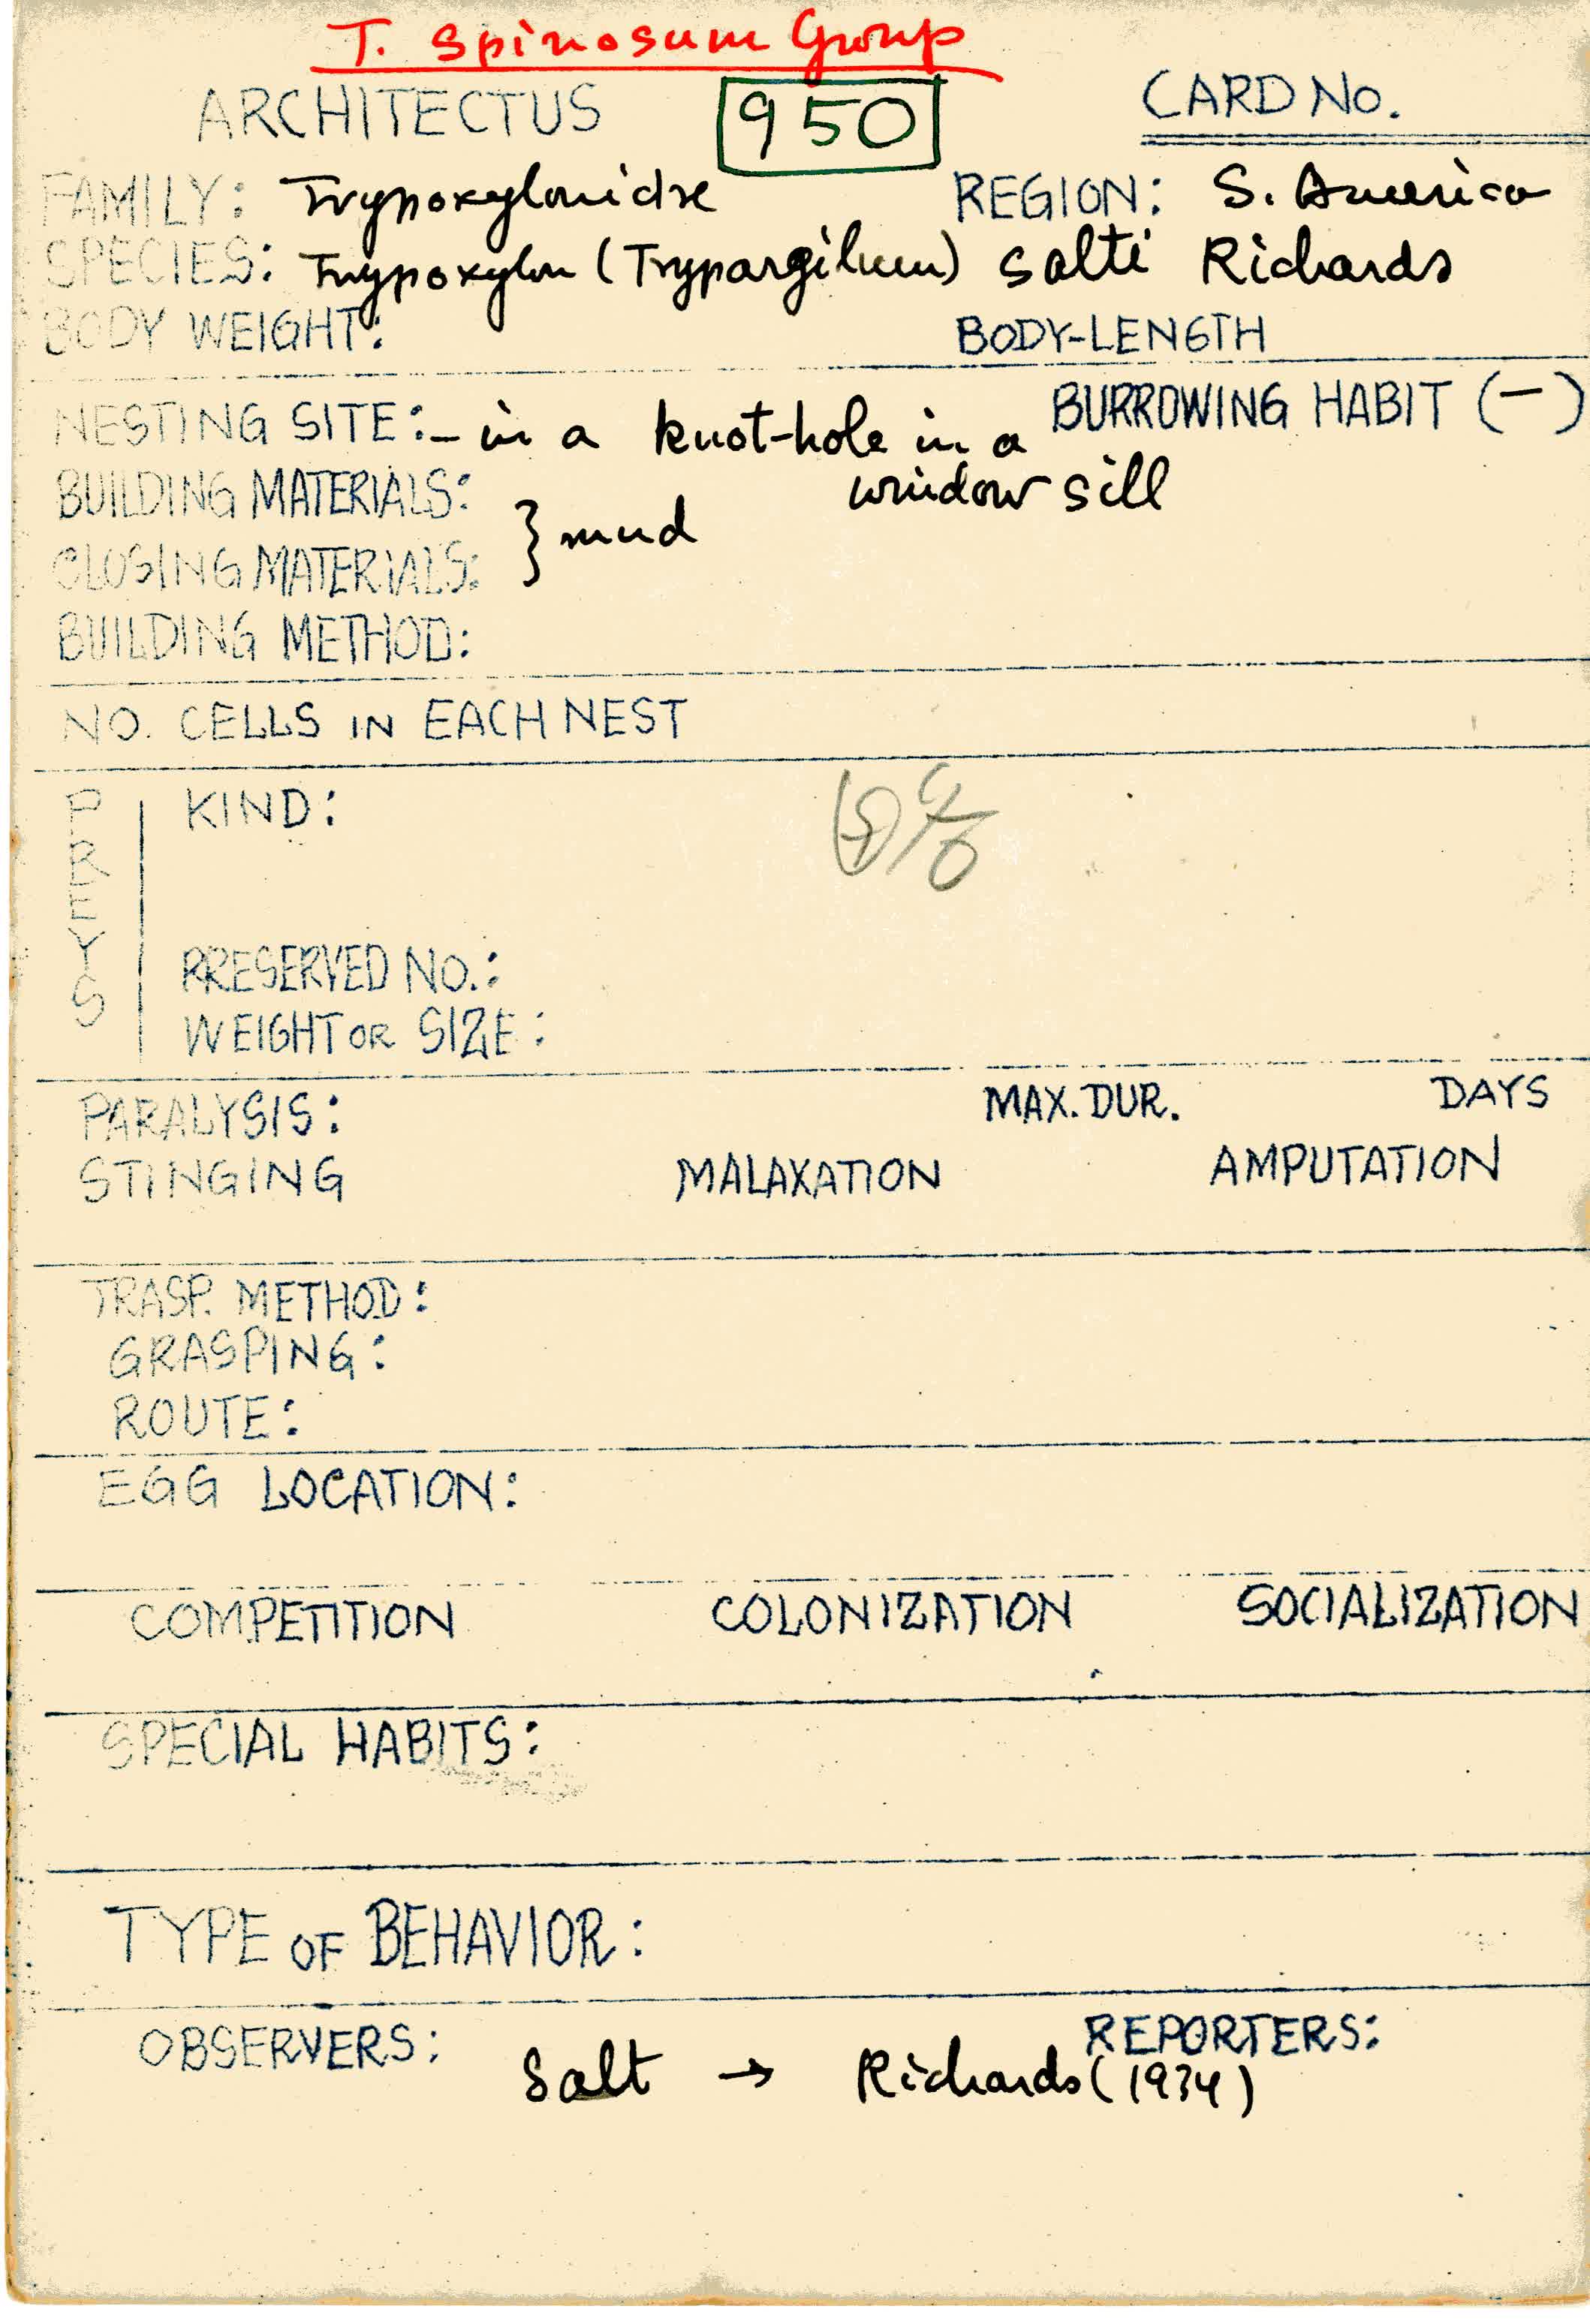 T. Spinosum Group
ARCHITECTUS 950 CARD No.
FAMILY: Trypoxylonidae REGION: S. America
SPECIES: Trypoxylon (Trypargilum) salti Richards
BODY WEIGHT: BODY-LENGTH
NESTING SITE:- in a knot-hole in a BURROWING HABIT (-)
window sill
BUILDING MATERIALS:
} mud
CLOSING MATERIALS:
BUILDING METHOD:
NO. CELLS IN EACH NEST
PREYS
KIND:
PRESERVED NO.:
WEIGHT OR SIZE:
PARALYSIS: MAX. DUR. DAYS
STINGING MALAXATION AMPUTATION
TRASP. METHOD:
GRASPING:
ROUTE:
EGG LOCATION:
COMPETITION COLONIZATION SOCIALIZATION
SPECIAL HABITS:
TYPE OF BEHAVIOR:
OBSERVERS: REPORTERS:
Salt → Richards (1934)